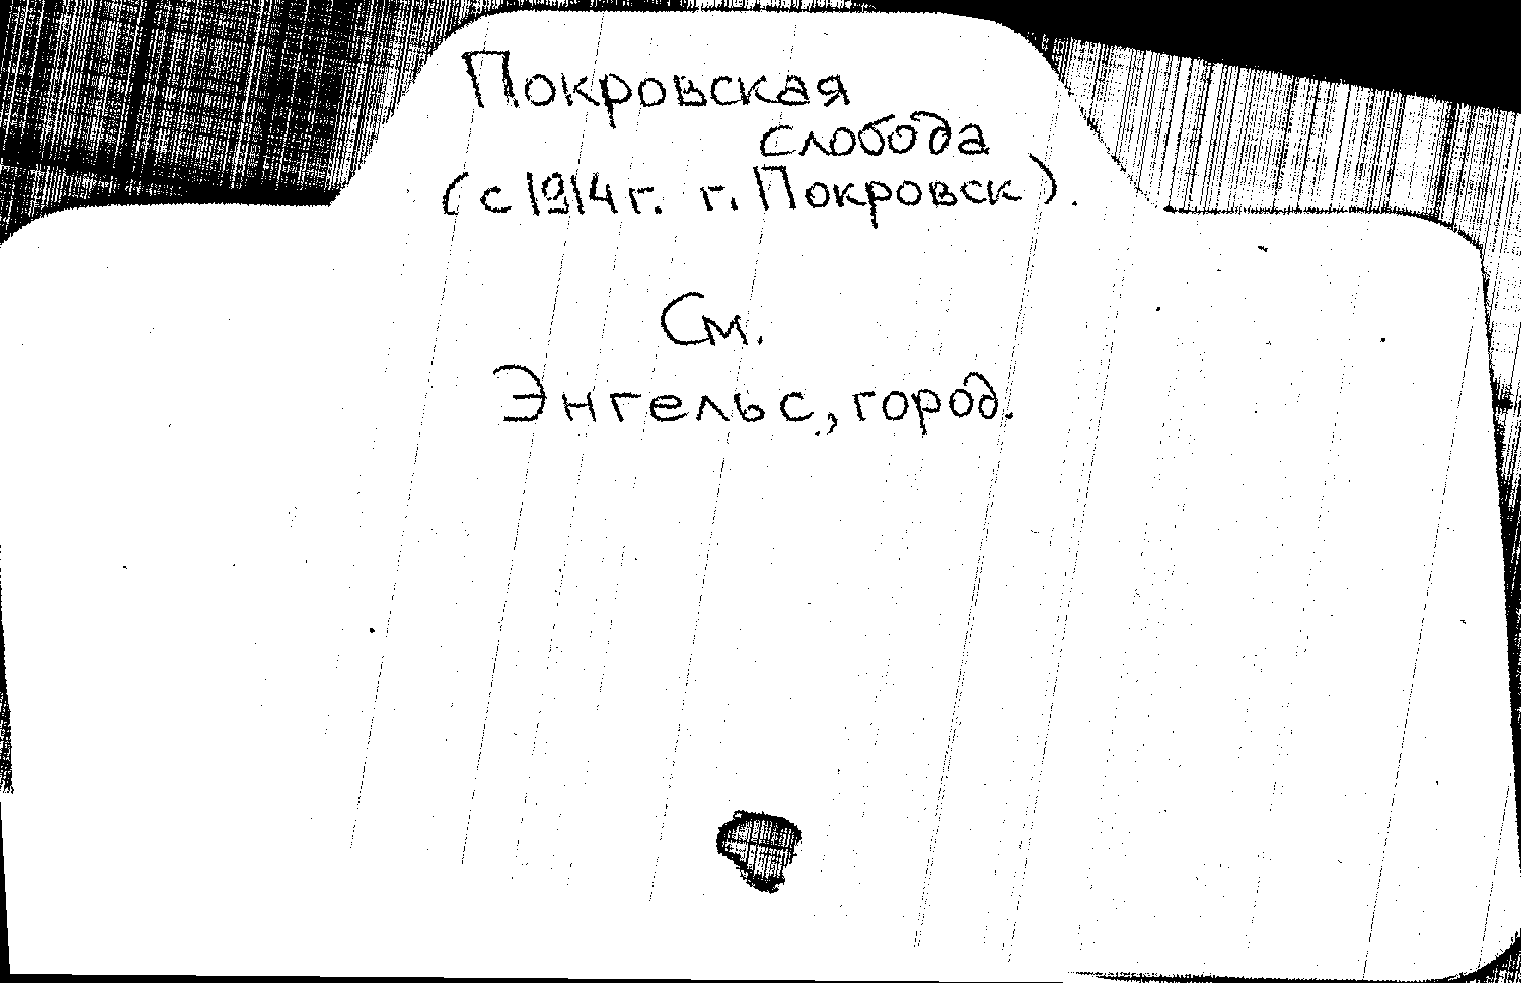 Покровская
слобода
(с 1914 г. г. Покровск).
См.
Энгельс, город.